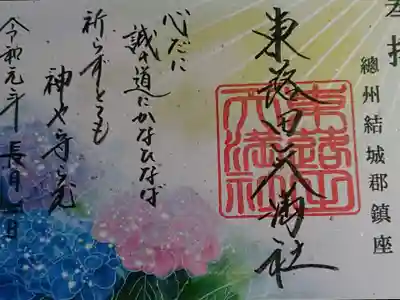 總州結城郡鎮座
東蕗田天満社
東蕗田
天満社
心だに
誠の道にかなひなば
祈らずとても
神や守らむ
令和元年 長月一日